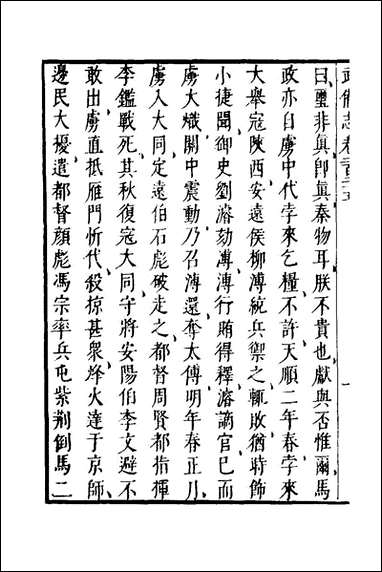 武備志卷二百二十五
曰璽非眞卽眞秦物耳朕不貴也獻與否惟爾馬
政亦自虜中代孛來乞糧不許天順二年春孛來
大舉寇陝西安遠侯柳溥統兵禦之輒敗猶時飾
小捷聞御史劉濬劾溥溥行賄得釋濬謫官已而
虜大熾關中震動乃召溥還奪太傅明年春正月
虜入大同定遠伯石彪破走之都督周賢都指揮
李鑑戰死其秋復寇大同守將安陽伯李文避不
敢出虜直抵雁門忻代殺掠甚衆烽火達于京師
邊民大擾遣都督顏彪馮宗率兵屯紫荆倒馬二